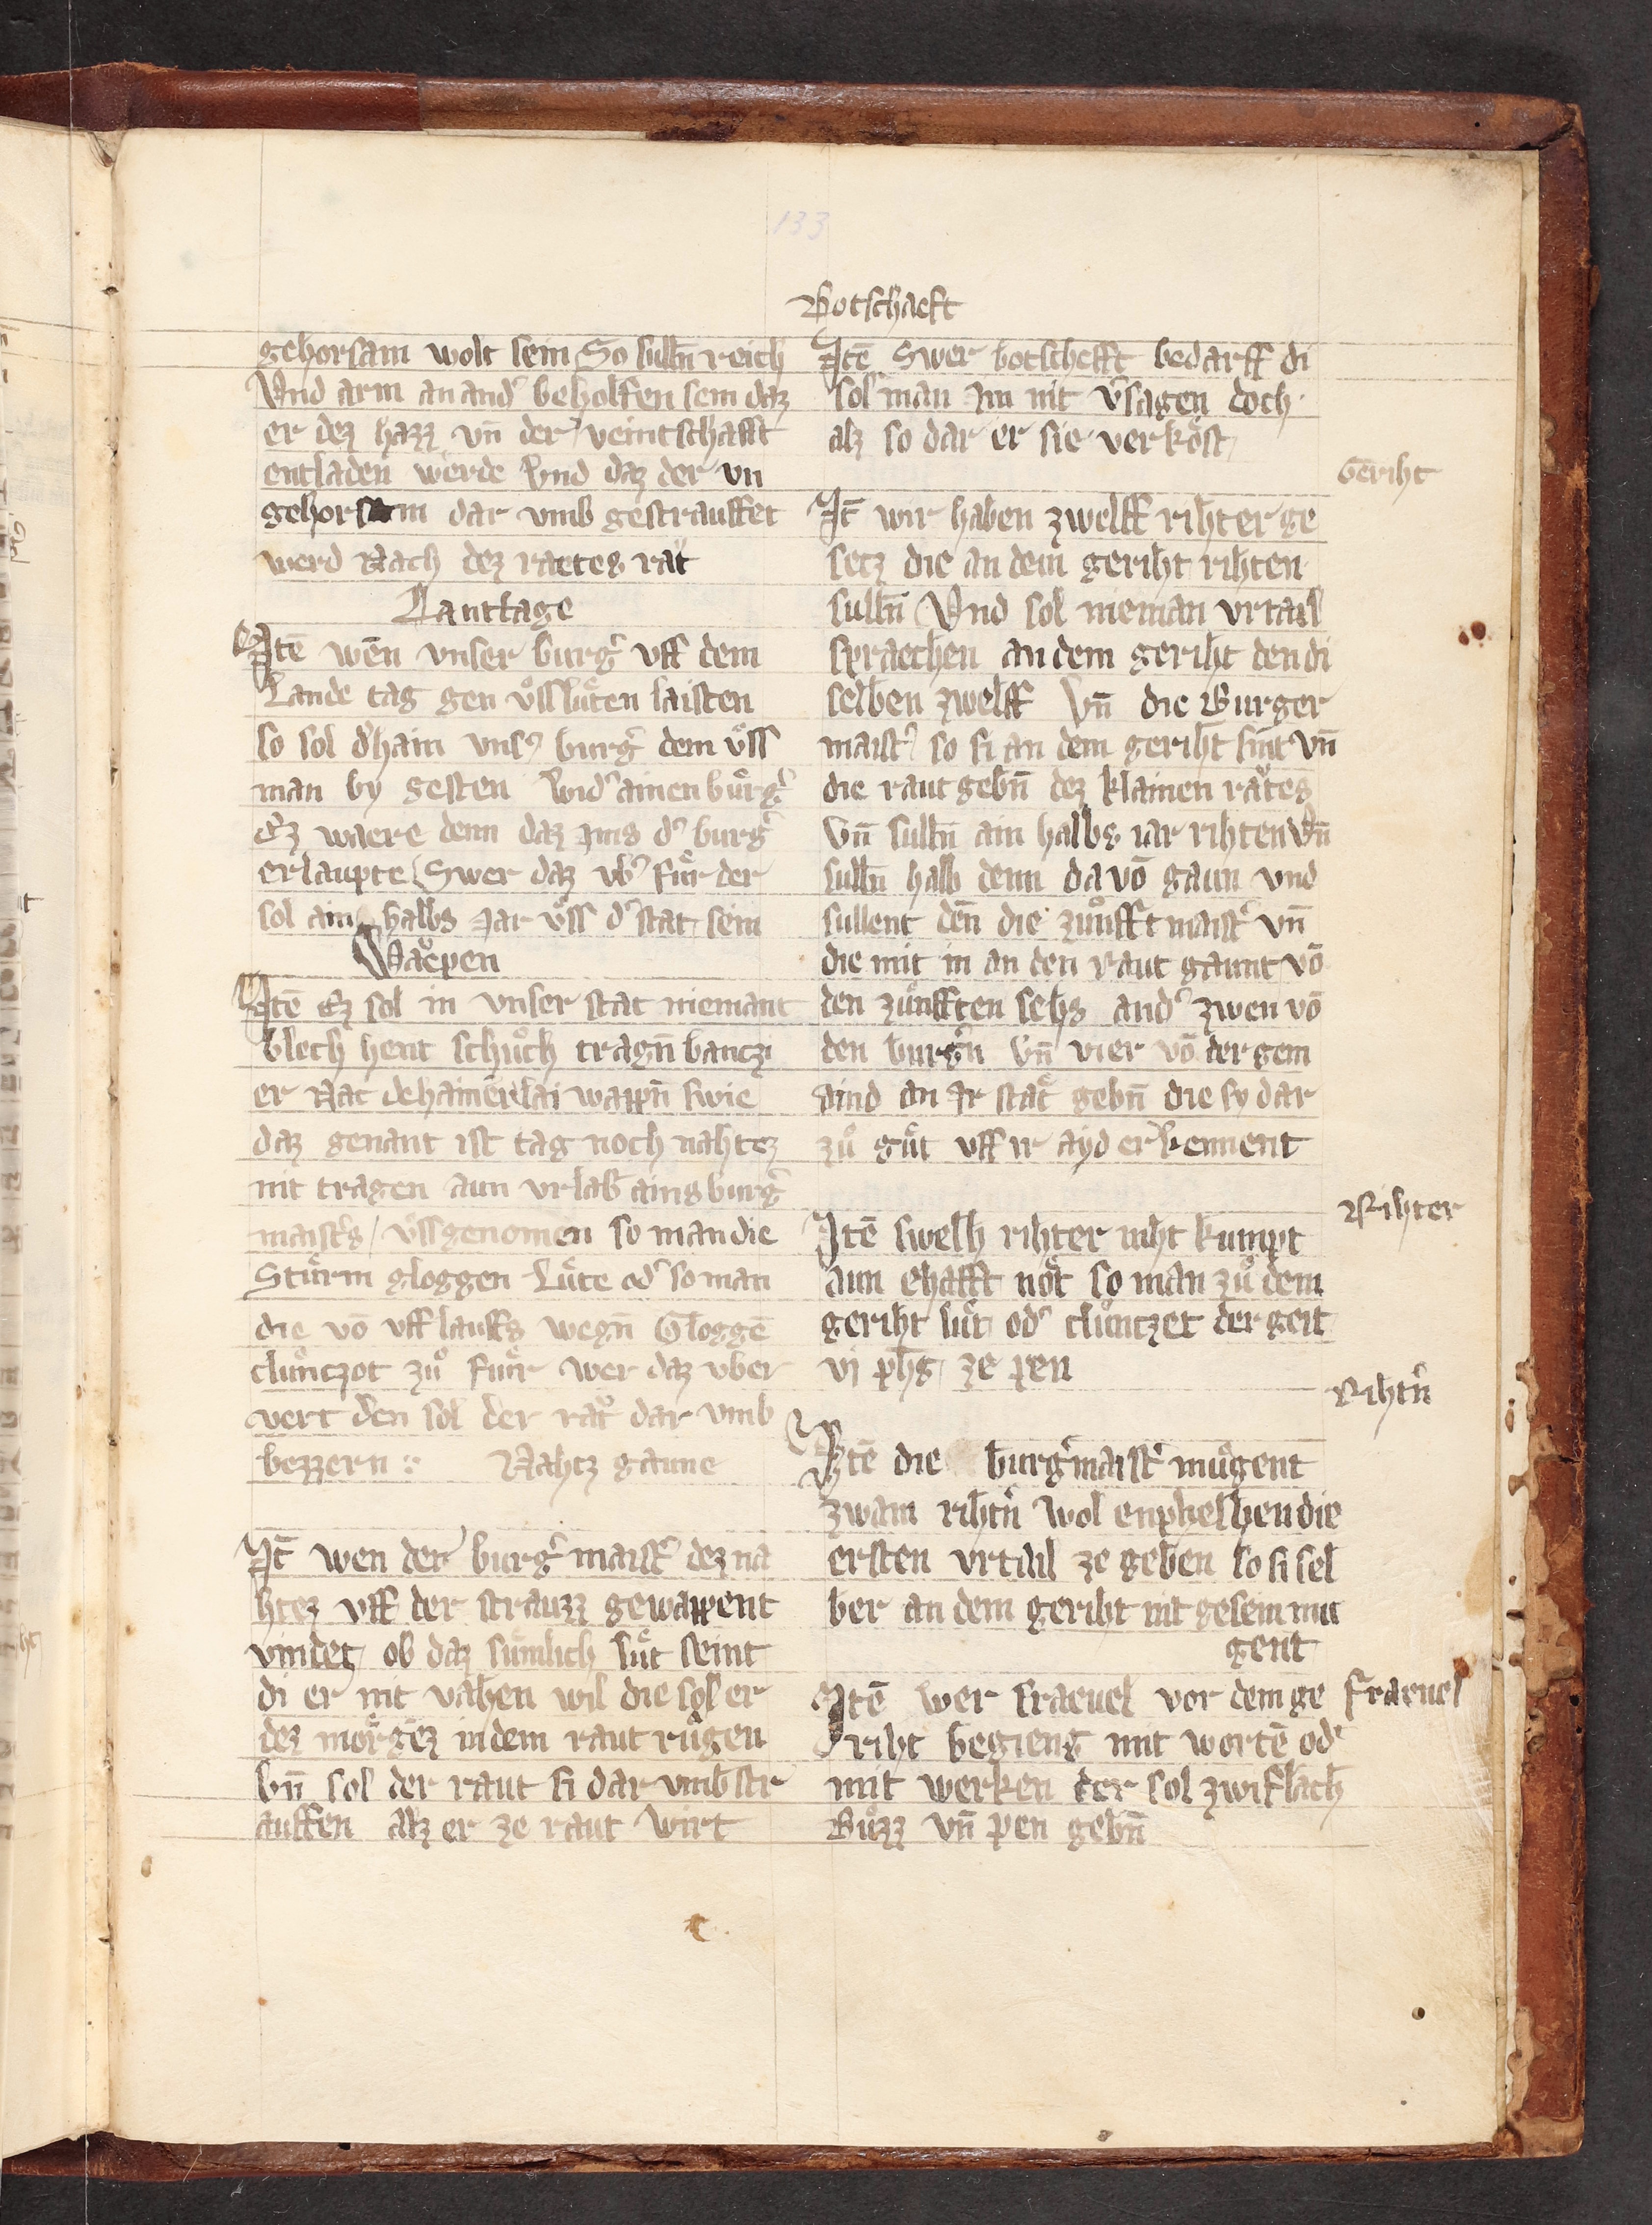 133
gehorsam wolt sein So sulln̄ reich
Vnd arm an and᷑ beholfen sein daz
er dez hazz vn̄ der veintschafft
entladen werde Vnd daz der vn
gehorsam dar vmb gestrauffet
werd Nach dez raetes raͤt
Lanttage
Itē wēn vnser burg᷑ vff dem
Lande tag gen vͦsslüten laisten
so sol d᷑hain vns᷑ burg᷑ dem vͦss
man by gesten wid᷑ ainen bürg᷑
Ez waere denn daz ims d᷑ burg᷑
erlaupte Swer daz vb᷑ fuͤr der
sol ain halbs Jar vͦss d᷑ stat sein
Waͤpen
Itē Ez sol in vnser stat niemant
blech hent schuͦch tragn̄ banczi
er Nac dehainerlai wappn̄ swie
daz genant ist tag noch nahtez
nit tragen aun vrlab ains burg᷑
maist᷑s / vssgenomen so man die
Stuͤrm gloggen Luͤte od᷑ so man
die vō vfflauffs wegn̄ Gloggē
cluͤnczot zuͦ fuͤir wer daz vber
vert den sol der raͤt dar vmb
bezzern :·
Nahtz gaune
It̄ wen der burg᷑ maist᷑ dez na
htez vff der strauzz gewappent
vindet ob daz sümlich lüt seint
di er nit vahen wil die sol er
dez morgez in dem raut rügen
vn̄ sol der raut si dar vmb str
auffen alz er ze raut wirt
Botschaeft
Itē Swer botschefft bedarff di
sol man im nit v᷑sagen doch
alz so dar er sie verköst
Geriht
It̄ wir haben zwelff rihter ge
setz die an dem geriht rihten
sulln̄ Vnd sol nieman vrtail
spraechen an dem geriht den di
selben zwelff Vn̄ die Burger
maist᷑ so si an dem geriht sint Vn̄
die rautgebn̄ dez klainen raͤtes
Vn̄ sulln̄ ain halbs iar rihten vn̄
sulln̄ halb denn da vō gaun vnd
sullent dēn die zuͤnfftmaist᷑ vn̄
die mit in an den raut gaunt vō
den zuͤnfften sehs and᷑ zwen vō
den burg᷑n Vn̄ vier vō der gem
aind an Ir stat gebn̄ die sy dar
zuͦ guͤt vff ir ayd erkennent
Rihter
Itē swelh rihter niht kumpt
aun ehafft nöt so man zuͦ dem
geriht lüt od᷑ cluͤnczet der geit
vj phg ze pen
Rihtn᷑
Itē die burg᷑maist᷑ mügent
zwain rihtn᷑ wol enphelhen die
ersten vrtail ze geben so si sel
ber an dem geriht nit gesein mu
gent
Fraeuel
Itē wer fraeuel vor dem ge
riht begieng mit wortē od᷑
mit werken der sol zwiflach
Buͦzz vn̄ pen gebn̄